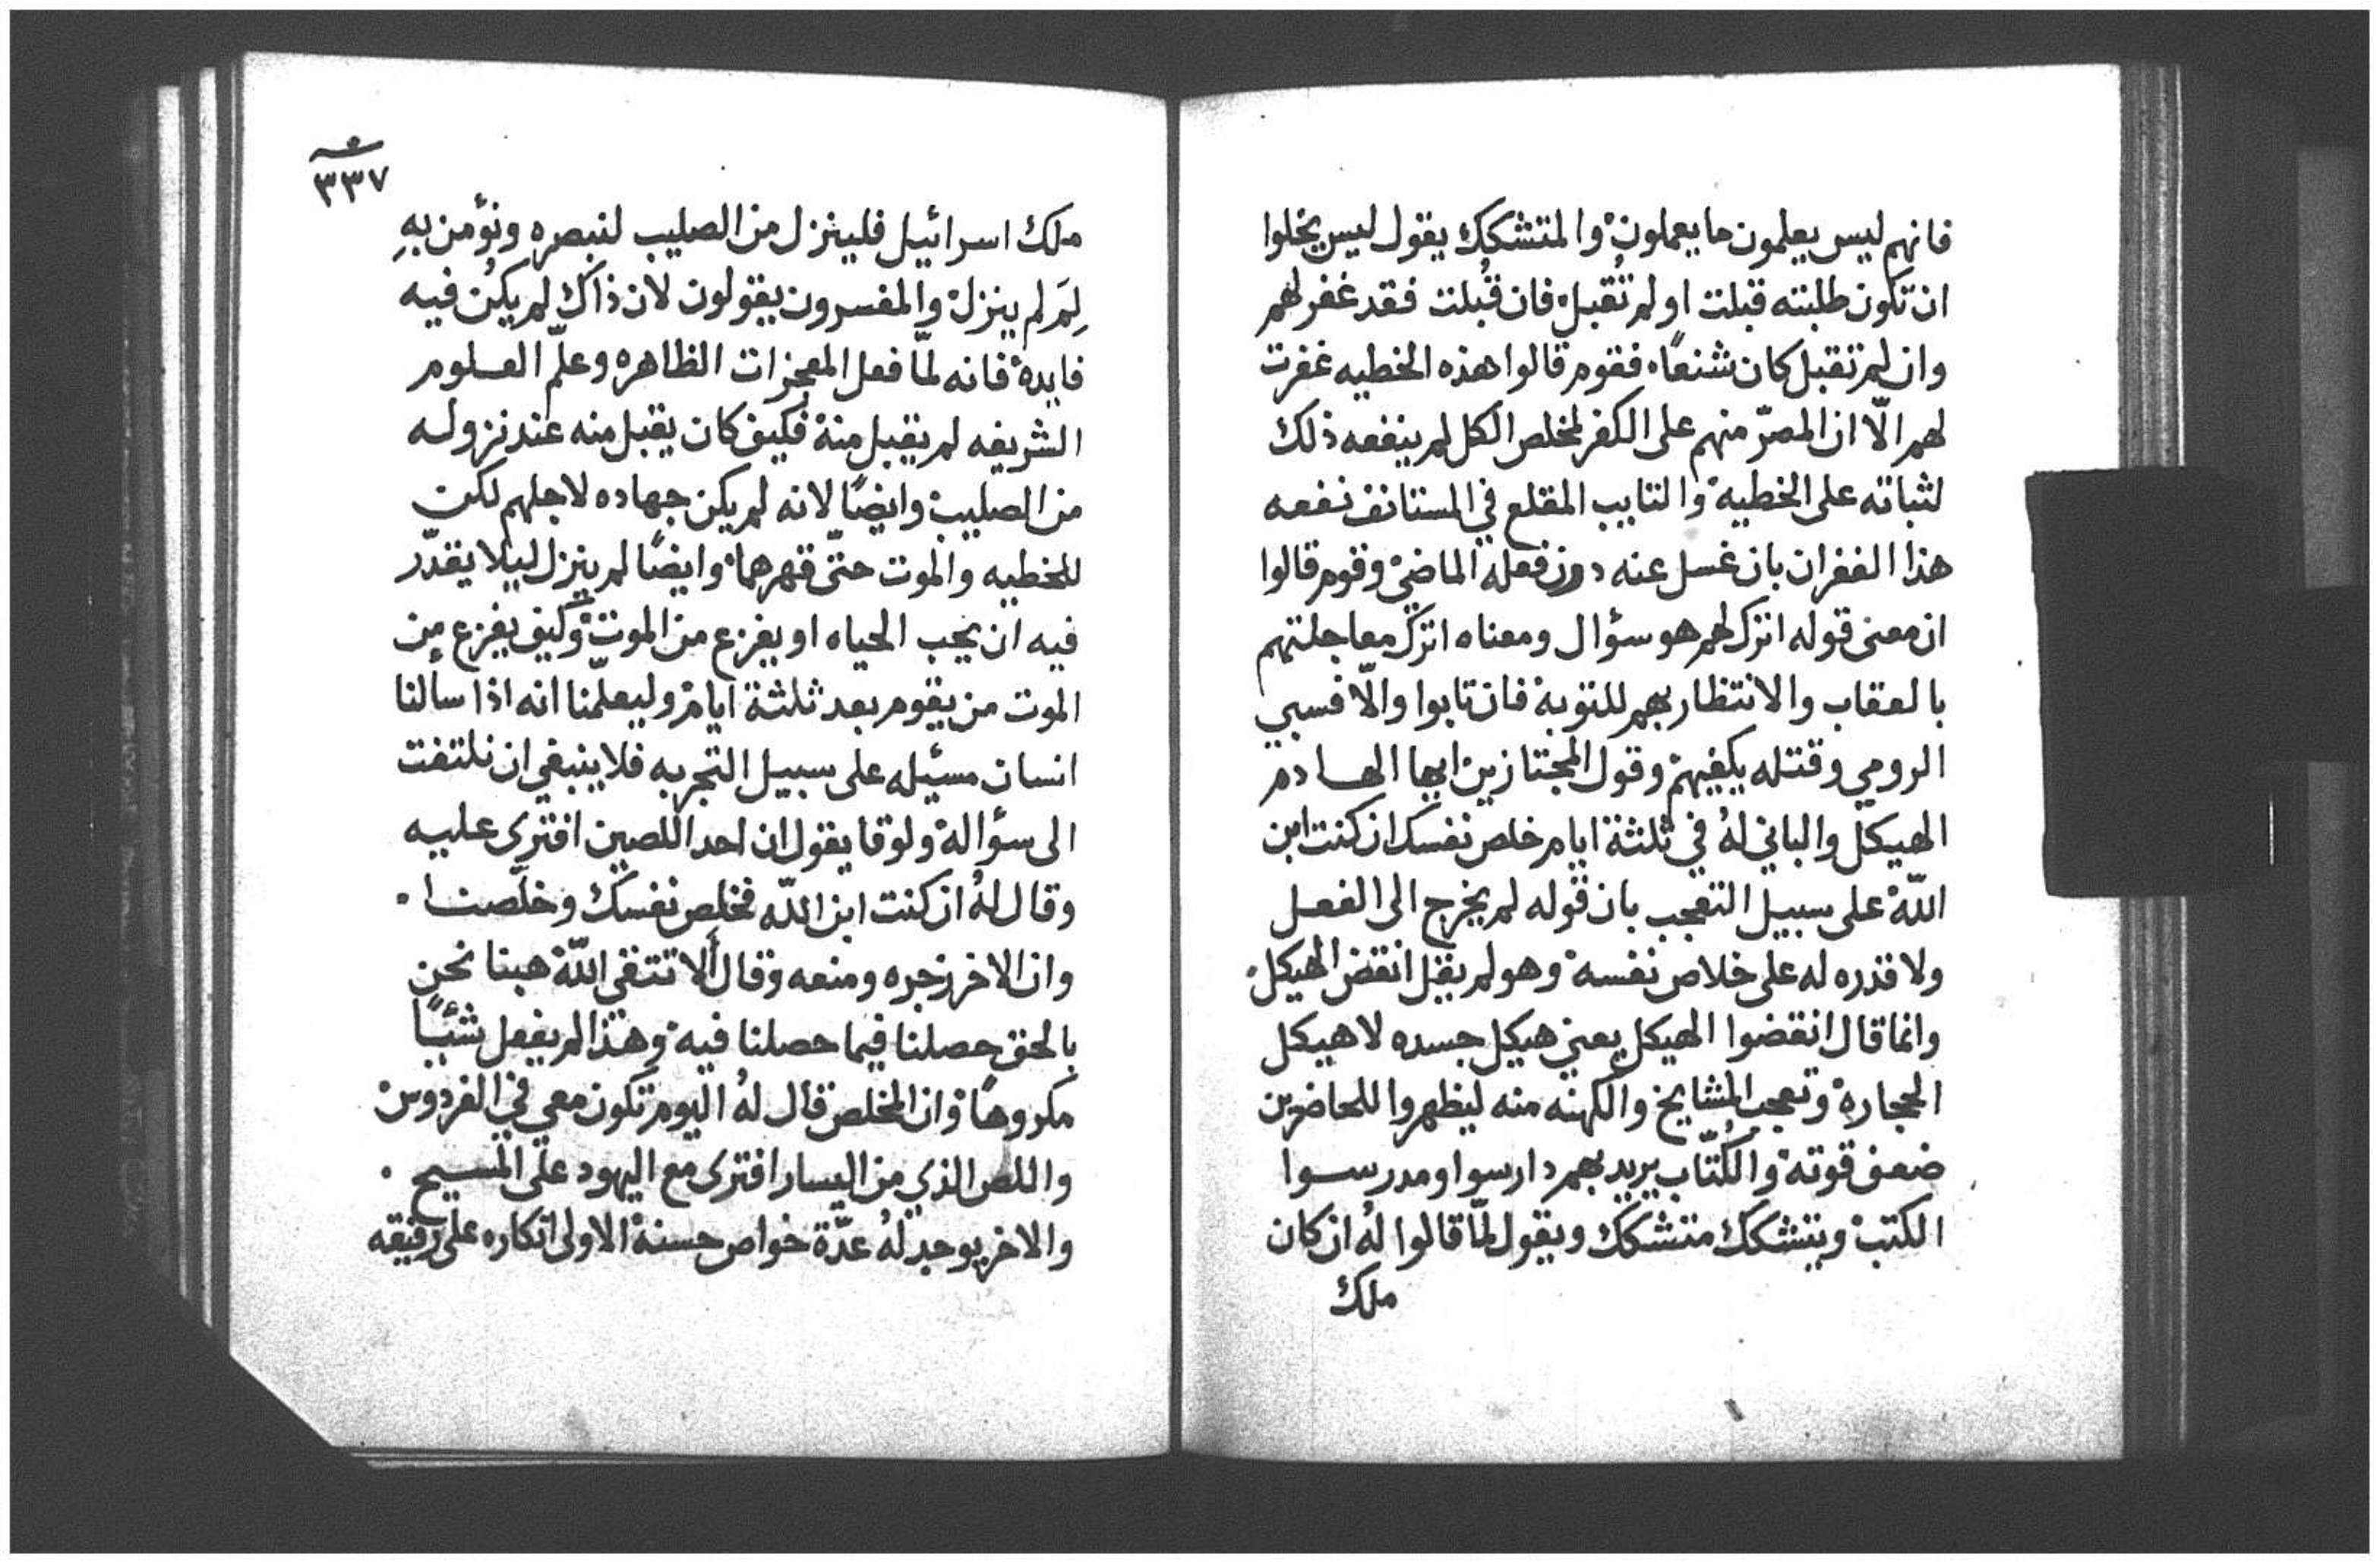 فانهم ليس يعلمون ما يعملون والمتشكك يقول ليس يخلوا
ان تكون طلبته قبلت او لم تُقبل فان قُبلت فقد غفر لهم
وان لم تقبل كان شنعًا فقوم قالوا هذه الخطيه غفرت
لهم الّا ان المصرّ منهم على الكفر لمخلص الكل لم ينفعه ذلك
لثباته على الخطيه والتايب المقلع في المستانف نفعه
هذا الغفران بان غسل عنه درن فعله الماضي وقوم قالوا
ان معنى قوله اترك لهم هو سؤال ومعناه اترك معاجلتهم
بالعقاب والانتظار بهم للتوبه فان تابوا والّا فسبي
الرومي وقتله يكفيهم وقول المجتازين ايها الهادم
الهيكل والباني لهُ في ثلثة ايام خلص نفسك ان كنت ابن
اللّه على سبيل التعجب بان قوله لم يخرج الى الفعل
ولا قدره له على خلاص نفسه وهو لم يقل انقض الهيكل
وانما قال انقضوا الهيكل يعني هيكل جسده لا هيكل
الحجاره وتعجب المشايخ والكهنه منه ليظهروا للحاضرين
ضعف قوته والكُتّاب يريد بهم دارسوا ومدرسوا
الكتب ويتشكك متشكك ويقول لمّا قالوا لهُ ان كان
ملك
٣٣٧
ملك اسرائيل فلينزل من الصليب لنبصره ونؤمن بهِ
لِمَ لم ينزل والمفسرون يقولون لان ذاك لم يكُن فيه
فايده فانه لمّا فعل المعجزات الظاهره وعلّم العلوم
الشريفه لم يقبل منه فكيف كان يقبل منه عند نزوله
من الصليب وايضًا لانه لم يكن جهاده لاجلهم لكن
للخطيه والموت حتّى قهرهما وايضًا لم ينزل ليلا يقدّر
فيه ان يحب الحياه او يفزع من الموت وكيف يفزع من
الموت من يقوم بعد ثلثة ايام وليعلّمنا انه اذا سألنا
انسان مسئيله على سبيل التجربه فلا ينبغي ان نلتفت
الى سؤاله ولوقا يقول ان احد اللصين افترى عليه
وقال لهُ ان كنت ابن اللّه فخلص نفسك وخلّصنا
وان الاخر زجره ومنعه وقال ألا تتقي اللّه هبنا نحن
بالحق حصلنا فيما حصلنا فيه وهذا لم يفعل شئيًا
مكروهًا وان المخلص قال لهُ اليوم تكون معي في الفردوس
واللص الذي من اليسار افترى مع اليهود على المسيح
والاخر يوجد لهُ عدّة خواص حسنة الاولى انكاره على رفيقه